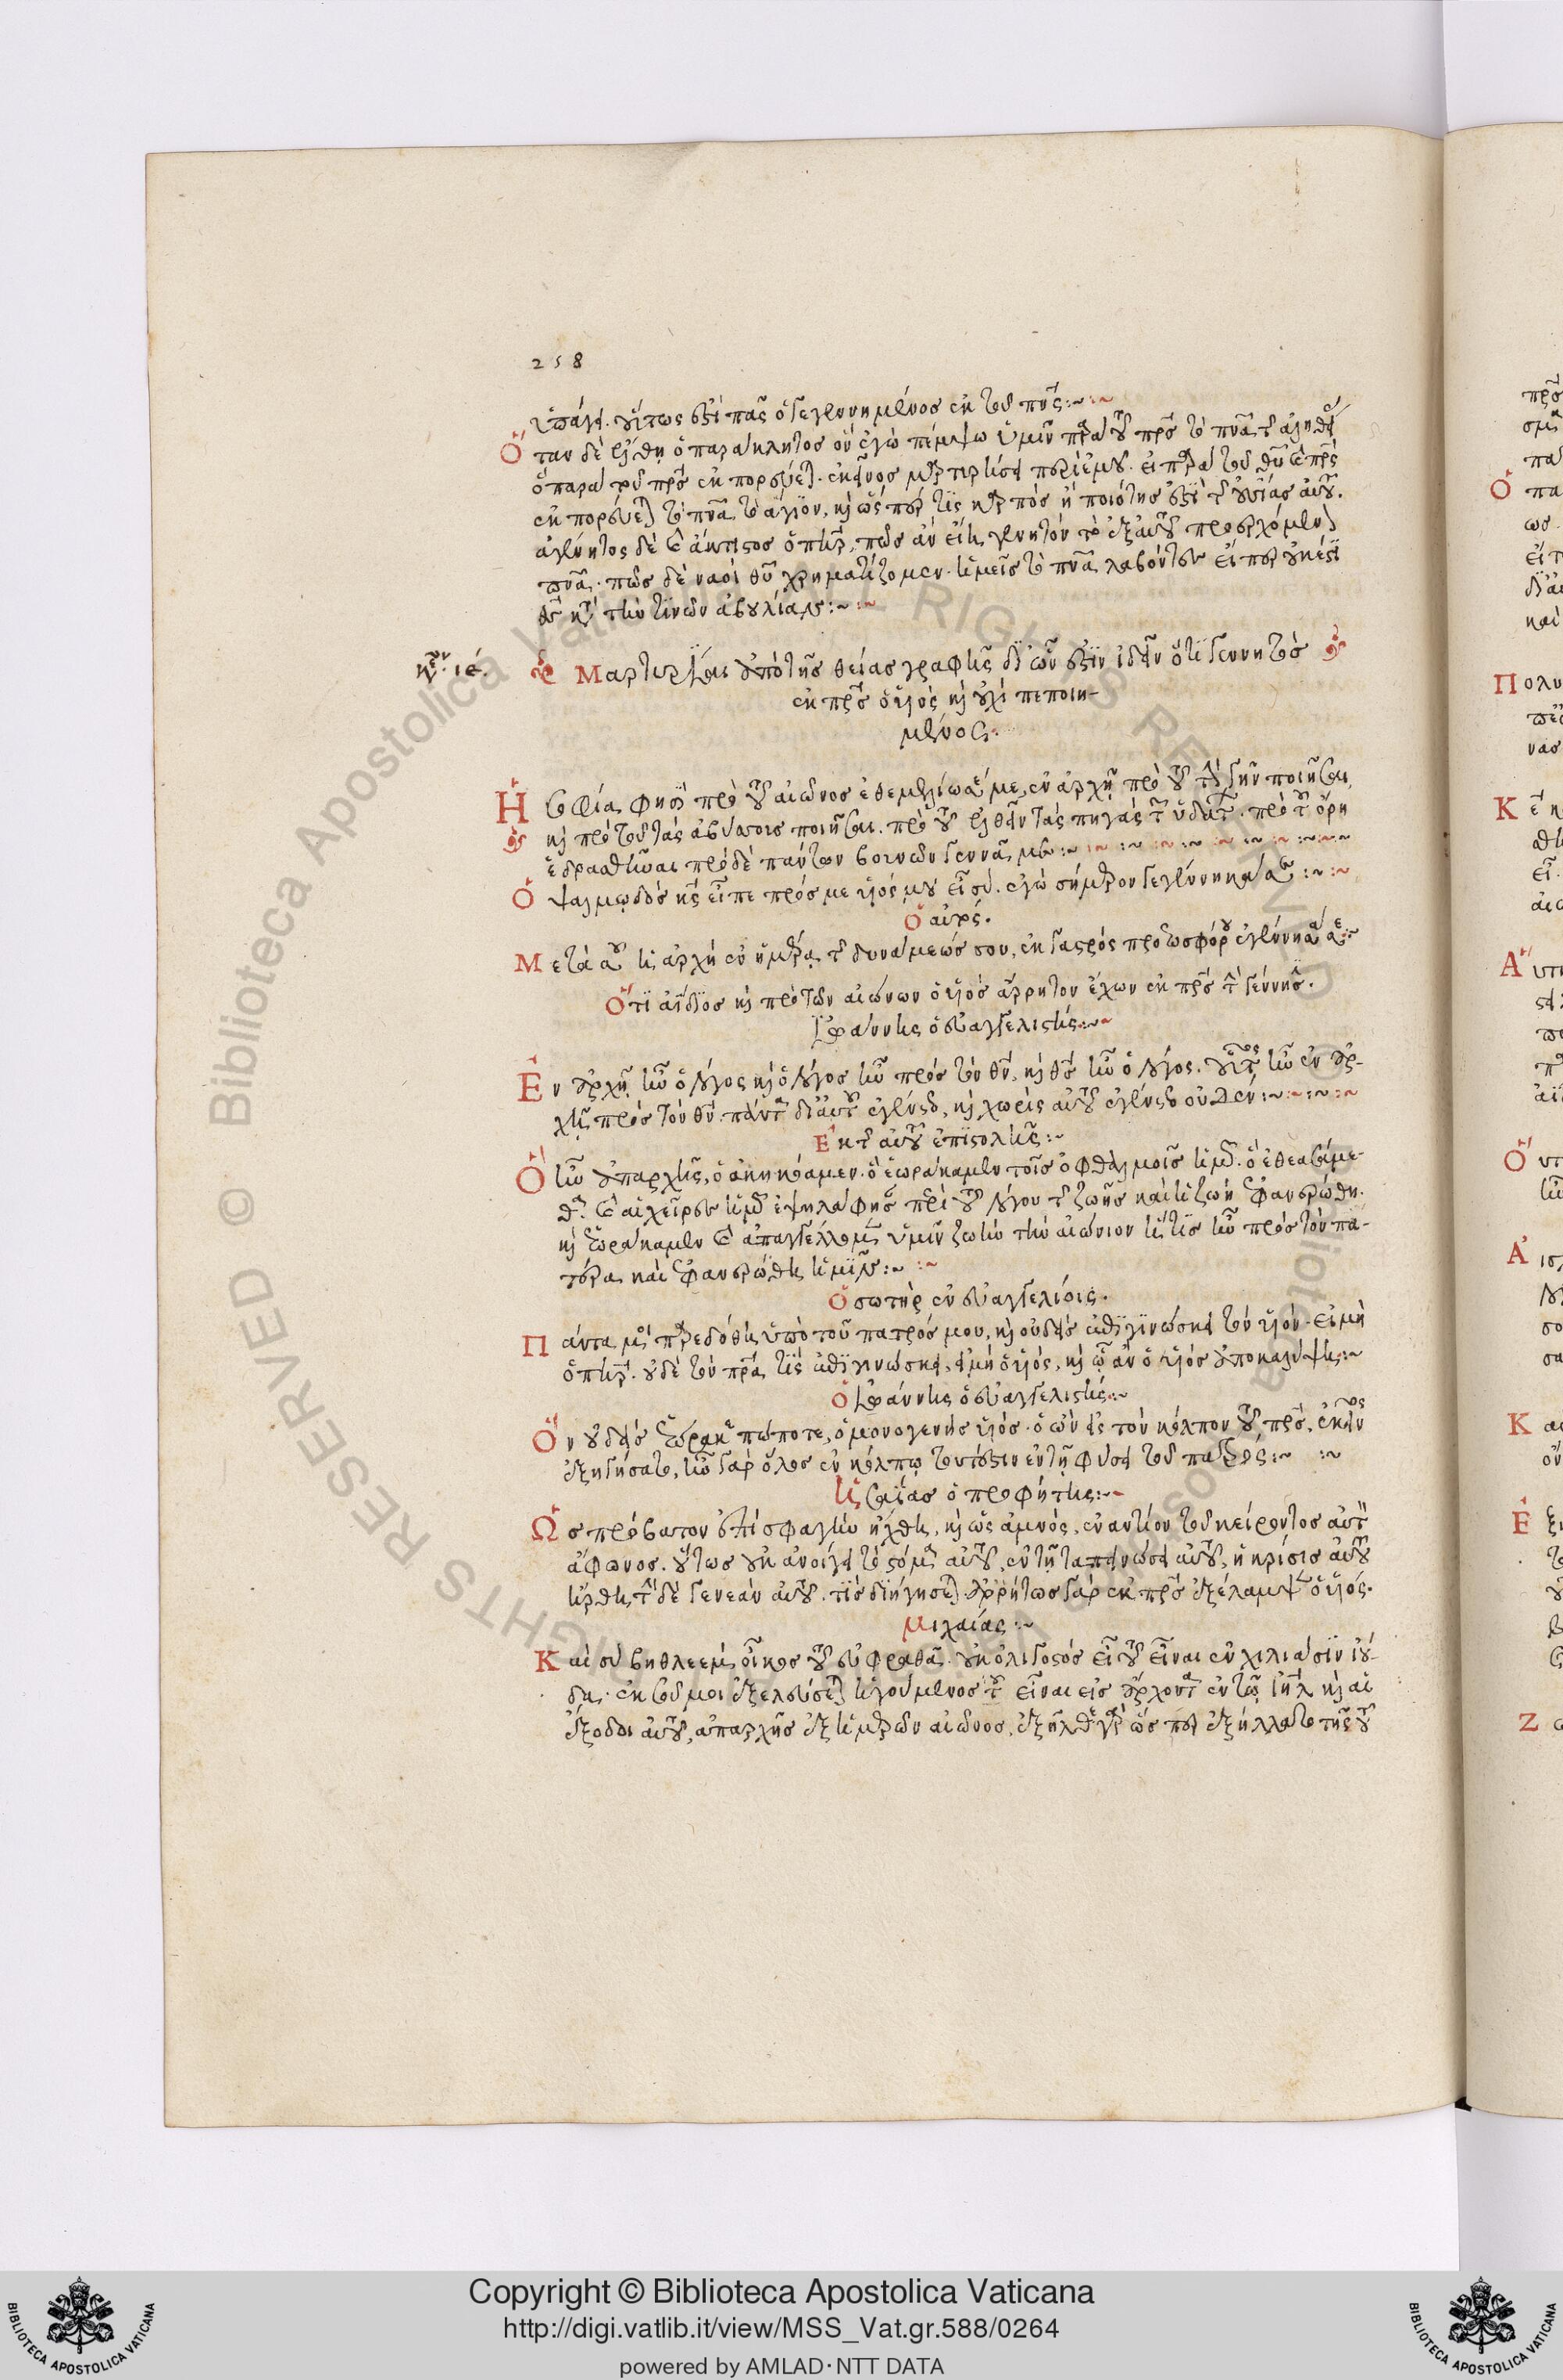 258
ὑπάγει. οὕτως ἐστὶ πᾶς ὁ γεγεννημένος ἐκ τοῦ πνς:~
Ὅταν δὲ ἔλθῃ ὁ παράκλητος ὃν ἐγὼ πέμψω ὑμῖν παρὰ τοῦ πρς τὸ πνα τῆς ἀληθείας
ὃ παρὰ τοῦ πρς ἐκπορεύεται. ἐκεῖνος μαρτυρήσει περὶ ἐμοῦ. εἰ παρὰ τοῦ θυ καὶ πρς
ἐκπορεύεται τὸ πνα τὸ ἅγιον, καὶ ὥσπερ τις καρπὸς ἢ ποιότης ἐστὶ τῆς οὐσίας αὐτοῦ.
ἀγένητος δὲ καὶ ἄκτιστος ὁ πηρ, πῶς ἂν εἴη γενητὸν τὸ ἐξ αὐτοῦ προερχόμενον
πνα. πῶς δὲ ναοὶ θυ χρηματίζομεν. ἡμεῖς τὸ πνα λαβόντες εἴπερ οὐκ ἔστι
θς κατὰ τὴν τινῶν ἀβουλίαν:~
κεφ. ιε.
Μαρτυρίαι ἀπὸ τῆς θείας γραφῆς δι' ὧν ἐστὶν ἰδεῖν ὅτι γεννητὸς
ἐκ πρς ὁ υἱὸς καὶ οὐχὶ πεποιη-
μένος.
Ἡ σοφία φησὶ πρὸ τοῦ αἰῶνος ἐθεμελίωσέ με, ἐν ἀρχῇ πρὸ τοῦ τὴν γῆν ποιῆσαι,
καὶ πρὸ τοῦ τὰς ἀβύσσους ποιῆσαι. πρὸ τοῦ ἐλθεῖν τὰς πηγὰς τῶν ὑδάτων. πρὸ τοῦ ὄρη
ἑδρασθῆναι πρὸ δὲ πάντων βουνῶν γεννᾷ με:~
Ὁ ψαλμῳδός κς εἶπε πρός με υἱός μου εἶ σύ. ἐγὼ σήμερον γεγέννηκά σε:~
Ὁ αὐτός.
Μετὰ σοῦ ἡ ἀρχὴ ἐν ἡμέρᾳ τῆς δυνάμεώς σου, ἐκ γαστρὸς πρὸ ἑωσφόρου ἐγέννησά σε:~
Ὅτι ἀΐδιος καὶ πρὸ τῶν αἰώνων ὁ υἱὸς ἄρρητον ἔχων ἐκ πρς τὴν γέννησιν.
Ἰωάννης ὁ εὐαγγελιστής:~
Ἐν ἀρχῇ ἦν ὁ λόγος καὶ ὁ λόγος ἦν πρὸς τὸν θν, καὶ θς ἦν ὁ λόγος. οὗτος ἦν ἐν ἀρ-
χῇ πρὸς τὸν θν. πάντα δι' αὐτοῦ ἐγένετο, καὶ χωρὶς αὐτοῦ ἐγένετο οὐδέν:~
Ἐκ τῆς αὐτοῦ ἐπιστολῆς:~
Ὃ ἦν ἀπ' ἀρχῆς, ὃ ἀκηκόαμεν. ὃ ἑωράκαμεν τοῖς ὀφθαλμοῖς ἡμῶν. ὃ ἐθεασάμε-
θα. καὶ αἱ χεῖρες ἡμῶν ἐψηλάφησαν περὶ τοῦ λόγου τῆς ζωῆς καὶ ἡ ζωὴ ἐφανερώθη.
καὶ ἑωράκαμεν καὶ ἀπαγγέλλομεν ὑμῖν ζωὴν τὴν αἰώνιον ἥτις ἦν πρὸς τὸν πα-
τέρα καὶ ἐφανερώθη ἡμῖν:~
Ὁ σωτὴρ ἐν εὐαγγελίοις.
Πάντα μοι παρεδόθη ὑπὸ τοῦ πατρός μου, καὶ οὐδεὶς ἐπιγινώσκει τὸν υἱόν. εἰ μὴ
ὁ πηρ. οὐδὲ τὸν πρα τὶς ἐπιγινώσκει, εἰ μὴ ὁ υἱός, καὶ ᾧ ἂν ὁ υἱὸς ἀποκαλύψῃ:~
Ὁ Ἰωάννης ὁ εὐαγγελιστής:~
Ὃν οὐδεὶς ἑώρακε πώποτε, ὁ μονογενὴς υἱός. ὁ ὢν εἰς τὸν κόλπον τοῦ πρς, ἐκεῖνος
ἐξηγήσατο, ἦν γὰρ ὅλος ἐν κόλπῳ τουτέστιν ἐν τῇ φύσει τοῦ πατρός:~
Ἡσαΐας ὁ προφήτης:~
Ὡς πρόβατον ἐπὶ σφαγὴν ἤχθη, καὶ ὡς ἀμνὸς, ἐναντίον τοῦ κείροντος αὐτὸν
ἄφωνος. οὕτως οὐκ ἀνοίγει τὸ στόμα αὐτοῦ, ἐν τῇ ταπεινώσει αὐτοῦ, ἡ κρίσις αὐτοῦ
ἤρθη, τὴν δὲ γενεὰν αὐτοῦ. τίς διηγήσεται ἀρρήτως γὰρ ἐκ πρς ἐξέλαμψεν ὁ υἱός.
Μιχαίας:~
Καὶ σὺ βηθλεεμ, οἶκος τοῦ εὐφραθᾶ. οὐκ ὀλιγοστὸς εἶ τοῦ εἶναι ἐν χιλιάσιν ἰού-
δα. ἐκ σοῦ μοι ἐξελεύσεται ἡγούμενος τοῦ εἶναι εἰς ἄρχοντα ἐν τῷ ιηλ καὶ αἱ
ἔξοδοι αὐτοῦ, ἀπαρχῆς ἐξ ἡμερῶν αἰῶνος, ἐξῆλθε γὰρ ὥσπερ ἐξήλλατο τῆς τοῦ
Copyright © Biblioteca Apostolica Vaticana
http://digi.vatlib.it/view/MSS_Vat.gr.588/0264
powered by AMLAD·NTT DATA